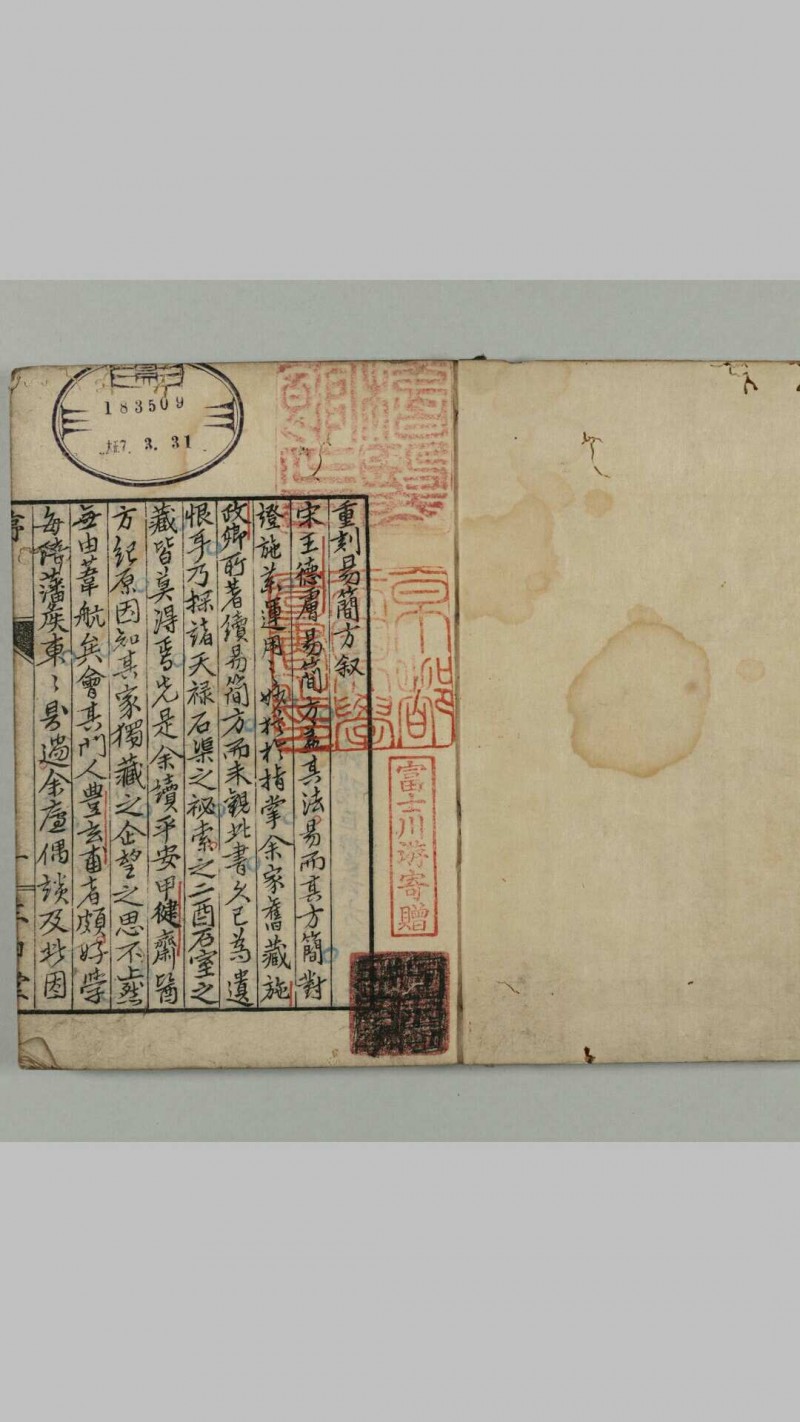 重刻易簡方叙
宋王德膚易簡方蓋其法易而其方簡對
證施藥運用之妙指掌余家舊藏施
政卿所著續易簡方而未觀此書久已為遺
恨乎乃探諸天禄石渠之祕索之二酉石室之
藏皆莫得焉先是余讀平安甲健齋醫
方紀原因知其家獨藏之企望之思不
毎由葦航矣會其門人豊玄甫者頗好學
每陪藩侯東之過余廬偶談及此因
序
183509
大正7. 3. 31
京都
富士川游寄贈